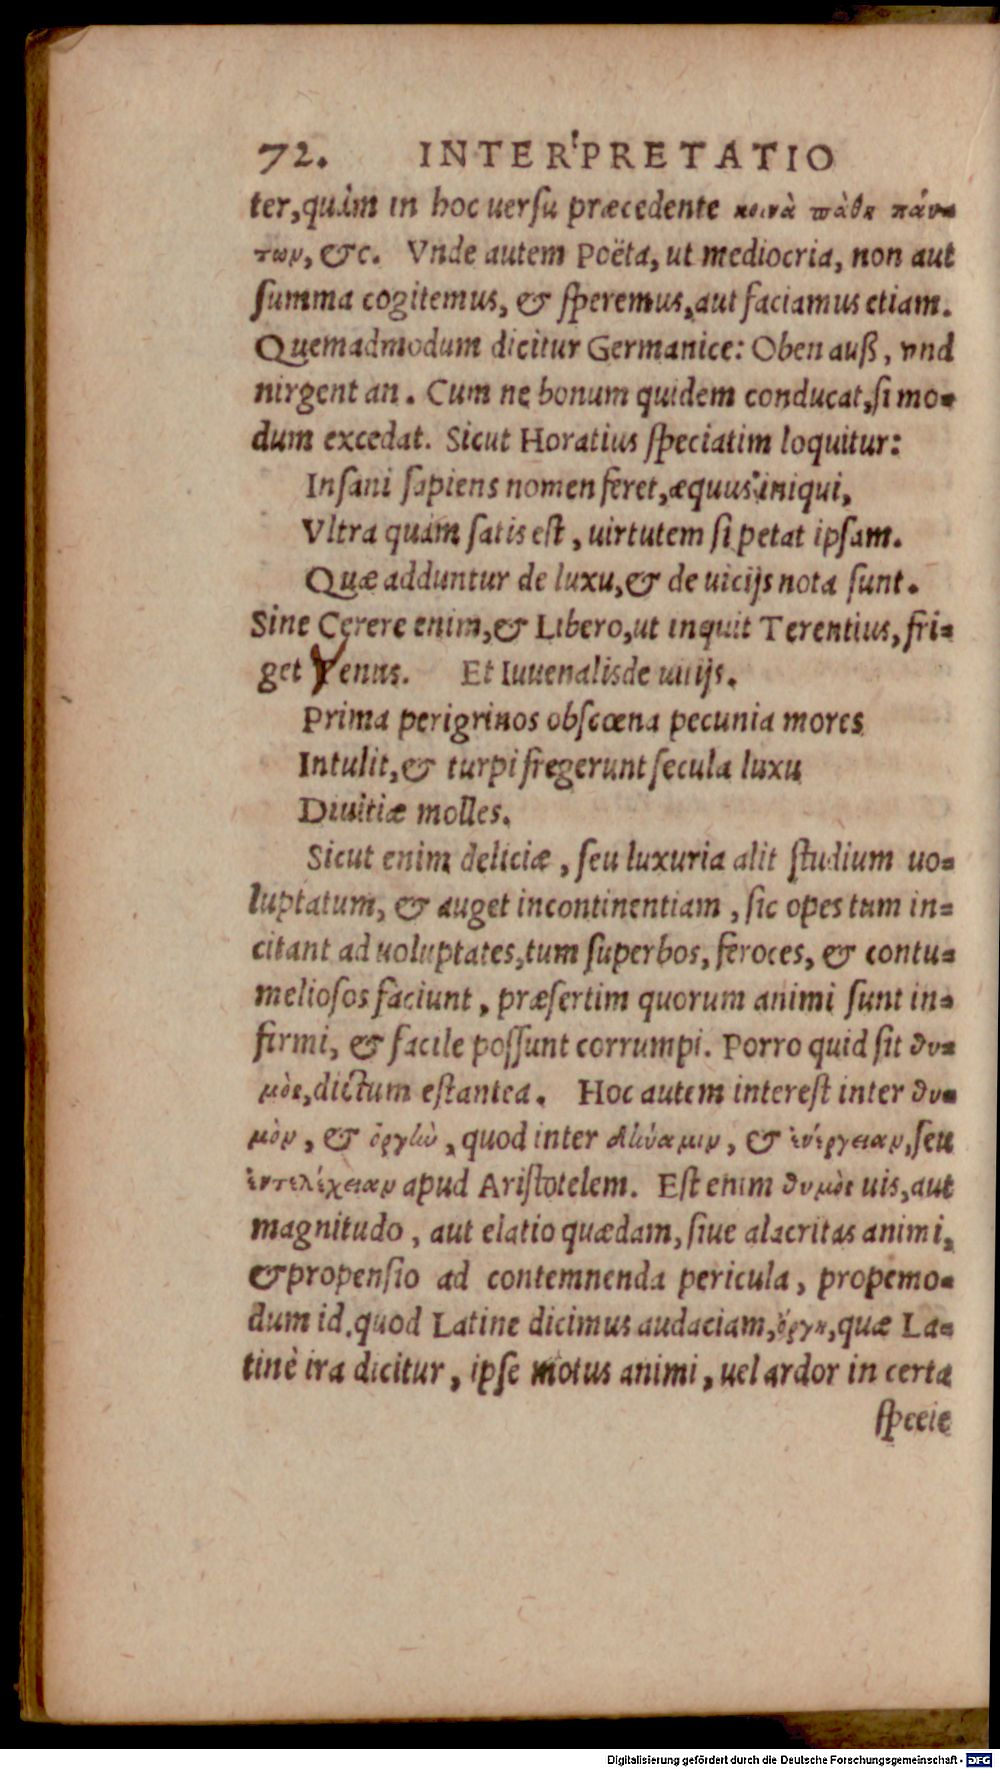 72. INTERPRETATIO
ter, quàm in hoc uersu præcedente κοινὰ πάθη πάν-
των, &c. Vnde autem Poëta, ut mediocria, non aut
summa cogitemus, & speremus, aut faciamus etiam.
Quemadmodum dicitur Germanice: Oben auß, vnd
nirgent an. Cum ne bonum quidem conducat, si mo-
dum excedat. Sicut Horatius speciatim loquitur:
Insani sapiens nomen feret, æquus iniqui,
Vltra quàm satis est, uirtutem si petat ipsam.
Quæ adduntur de luxu, & de uicijs nota sunt.
Sine Cerere enim, & Libero, ut inquit Terentius, fri-
get Venus. Et Iuuenalis de uitijs.
Prima perigrinos obscœna pecunia mores
Intulit, & turpi fregerunt secula luxu
Diuitiæ molles.
Sicut enim deliciæ, seu luxuria alit studium uo-
luptatum, & auget incontinentiam, sic opes tum in-
citant ad uoluptates, tum superbos, feroces, & contu-
meliosos faciunt, præsertim quorum animi sunt in-
firmi, & facile possunt corrumpi. Porro quid sit θυ-
μὸς, dictum est antea. Hoc autem interest inter θυ-
μὸν, & ὀργὼ, quod inter δύναμιν, & ἐνέργειαν, seu
ἐντελέχειαν apud Aristotelem. Est enim θυμὸς uis, aut
magnitudo, aut elatio quædam, siue alacritas animi,
& propensio ad contemnenda pericula, propemo-
dum id, quod Latine dicimus audaciam, ὄργη, quæ La-
tinè ira dicitur, ipse motus animi, uel ardor in certa
specie
Digitalisierung gefördert durch die Deutsche Forschungsgemeinschaft - DFG